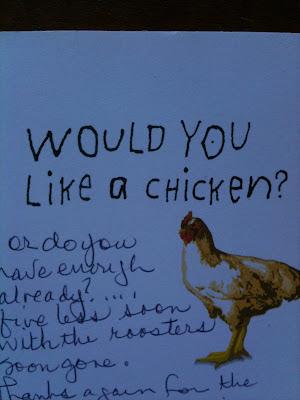 WOULD YOU
LIKE a CHICKEN?
or do you
have enough
already?.....
five less soon
with the roosters
soon gone.
Thanks again for the